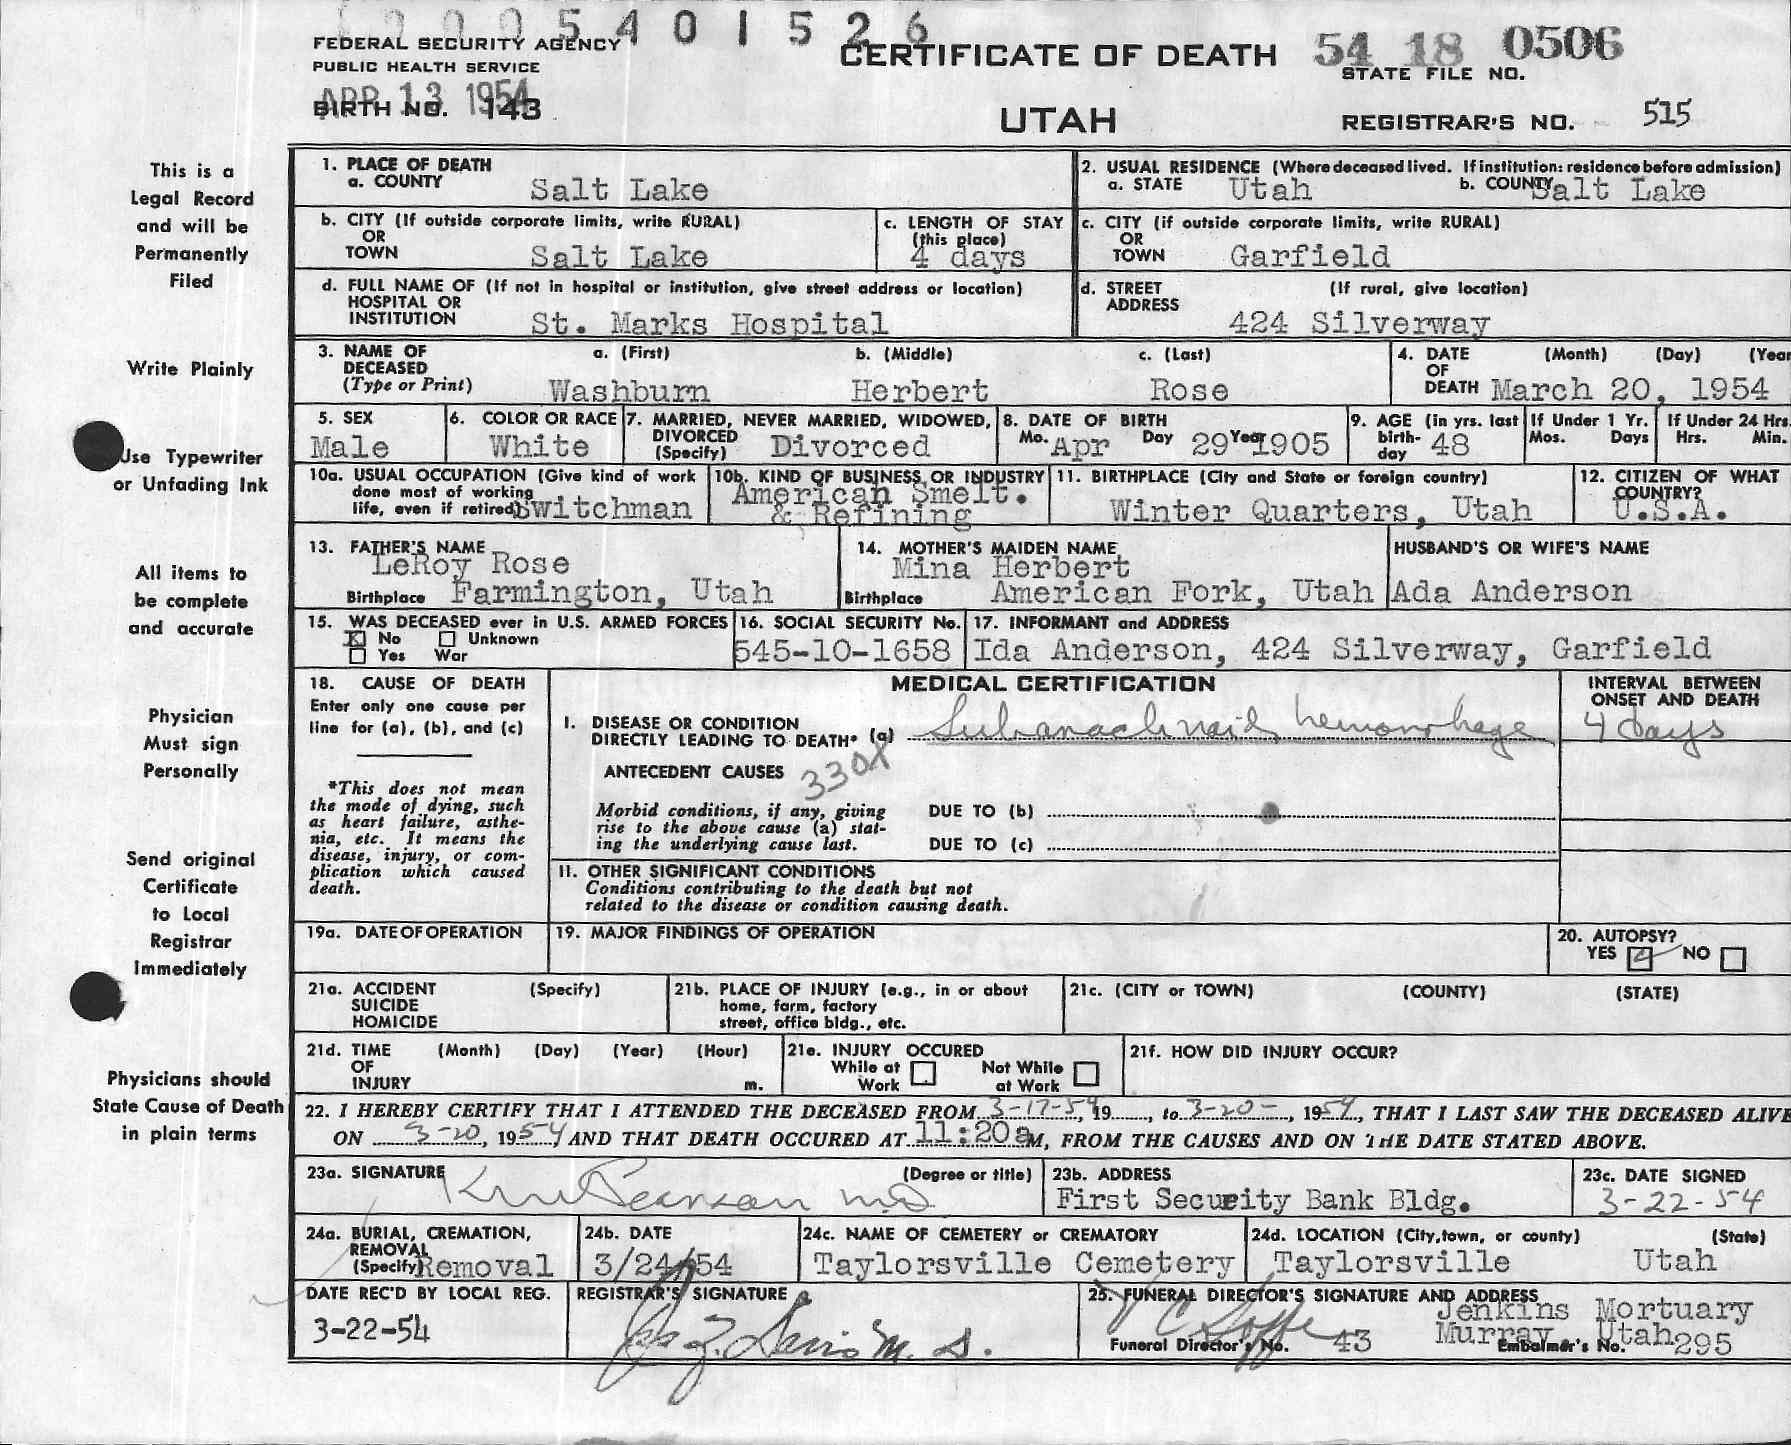 0005401526
FEDERAL SECURITY AGENCY
PUBLIC HEALTH SERVICE
APR 13 1954
BIRTH NO. 143
CERTIFICATE OF DEATH
UTAH
54 18 0506
STATE FILE NO.
REGISTRAR'S NO. 515
This is a
Legal Record
and will be
Permanently
Filed
Write Plainly
Use Typewriter
or Unfading Ink
All items to
be complete
and accurate
Physician
Must sign
Personally
Send original
Certificate
to Local
Registrar
Immediately
Physicians should
State Cause of Death
in plain terms
1. PLACE OF DEATH
a. COUNTY Salt Lake
2. USUAL RESIDENCE (Where deceased lived. If institution: residence before admission)
a. STATE Utah b. COUNTY Salt Lake
b. CITY (If outside corporate limits, write RURAL)
OR
TOWN Salt Lake
c. LENGTH OF STAY
(this place)
4 days
c. CITY (if outside corporate limits, write RURAL)
OR
TOWN Garfield
d. FULL NAME OF (If not in hospital or institution, give street address or location)
HOSPITAL OR
INSTITUTION St. Marks Hospital
d. STREET (If rural, give location)
ADDRESS
424 Silverway
3. NAME OF a. (First) b. (Middle) c. (Last)
DECEASED
(Type or Print) Washburn Herbert Rose
4. DATE (Month) (Day) (Year
OF
DEATH March 20, 1954
5. SEX
Male
6. COLOR OR RACE
White
7. MARRIED, NEVER MARRIED, WIDOWED,
DIVORCED
(Specify) Divorced
8. DATE OF BIRTH
Mo. Apr Day 29 Year 1905
9. AGE (in yrs. last
birth-
day 48
If Under 1 Yr.
Mos. Days
If Under 24 Hrs.
Hrs. Min.
10a. USUAL OCCUPATION (Give kind of work
done most of working
life, even if retired) Switchman
10b. KIND OF BUSINESS OR INDUSTRY
American Smelt.
& Refining
11. BIRTHPLACE (City and State or foreign country)
Winter Quarters, Utah
12. CITIZEN OF WHAT
COUNTRY?
U.S.A.
13. FATHER'S NAME
LeRoy Rose
Birthplace Farmington, Utah
14. MOTHER'S MAIDEN NAME
Mina Herbert
Birthplace American Fork, Utah
HUSBAND'S OR WIFE'S NAME
Ada Anderson
15. WAS DECEASED ever in U.S. ARMED FORCES
X No Unknown
Yes War
16. SOCIAL SECURITY No.
545-10-1658
17. INFORMANT and ADDRESS
Ida Anderson, 424 Silverway, Garfield
18. CAUSE OF DEATH
Enter only one cause per
line for (a), (b), and (c)
*This does not mean
the mode of dying, such
as heart failure, asthe-
nia, etc. It means the
disease, injury, or com-
plication which caused
death.
MEDICAL CERTIFICATION
INTERVAL BETWEEN
ONSET AND DEATH
I. DISEASE OR CONDITION
DIRECTLY LEADING TO DEATH* (a) Subarachnoid hemorrhage 4 days
330X
ANTECEDENT CAUSES
Morbid conditions, if any, giving
rise to the above cause (a) stat-
ing the underlying cause last.
DUE TO (b)
DUE TO (c)
11. OTHER SIGNIFICANT CONDITIONS
Conditions contributing to the death but not
related to the disease or condition causing death.
19a. DATE OF OPERATION
19. MAJOR FINDINGS OF OPERATION
20. AUTOPSY?
YES NO
21a. ACCIDENT (Specify)
SUICIDE
HOMICIDE
21b. PLACE OF INJURY (e.g., in or about
home, farm, factory
street, office bldg., etc.
21c. (CITY or TOWN) (COUNTY) (STATE)
21d. TIME (Month) (Day) (Year) (Hour)
OF
INJURY m.
21e. INJURY OCCURED
While at Not While
Work at Work
21f. HOW DID INJURY OCCUR?
22. I HEREBY CERTIFY THAT I ATTENDED THE DECEASED FROM 3-17-54, 19, to 3-20-, 1954, THAT I LAST SAW THE DECEASED ALIVE
ON 3-20, 1954 AND THAT DEATH OCCURED AT 11:20 a M, FROM THE CAUSES AND ON THE DATE STATED ABOVE.
23a. SIGNATURE (Degree or title)
M.D.
23b. ADDRESS
First Security Bank Bldg.
23c. DATE SIGNED
3-22-54
24a. BURIAL, CREMATION,
REMOVAL
(Specify) Removal
24b. DATE
3/24/54
24c. NAME OF CEMETERY or CREMATORY
Taylorsville Cemetery
24d. LOCATION (City, town, or county) (State)
Taylorsville Utah
DATE REC'D BY LOCAL REG.
3-22-54
REGISTRAR'S SIGNATURE
M. D.
25. FUNERAL DIRECTOR'S SIGNATURE AND ADDRESS
Jenkins Mortuary
Murray, Utah
Funeral Director's No. 43 Embalmer's No. 295